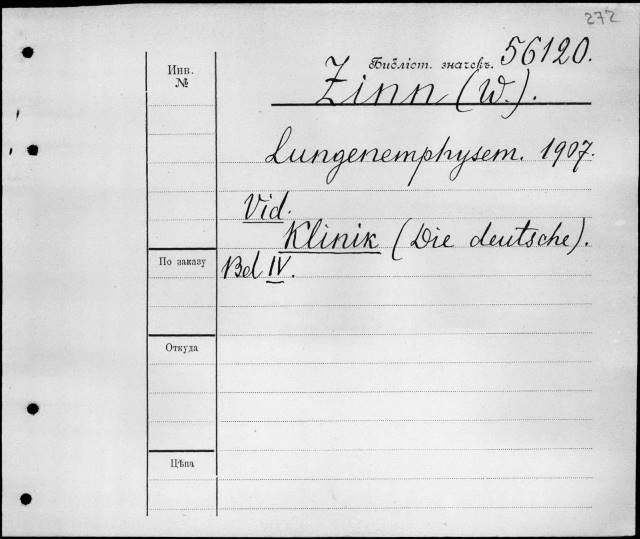 272
Инв.
№
Библіот. значекъ. 56120.
Zinn (W.).
Lungenemphysem. 1907.
Vid.
Klinik (Die deutsche).
По заказу
Bd IV.
Откуда
Цѣна